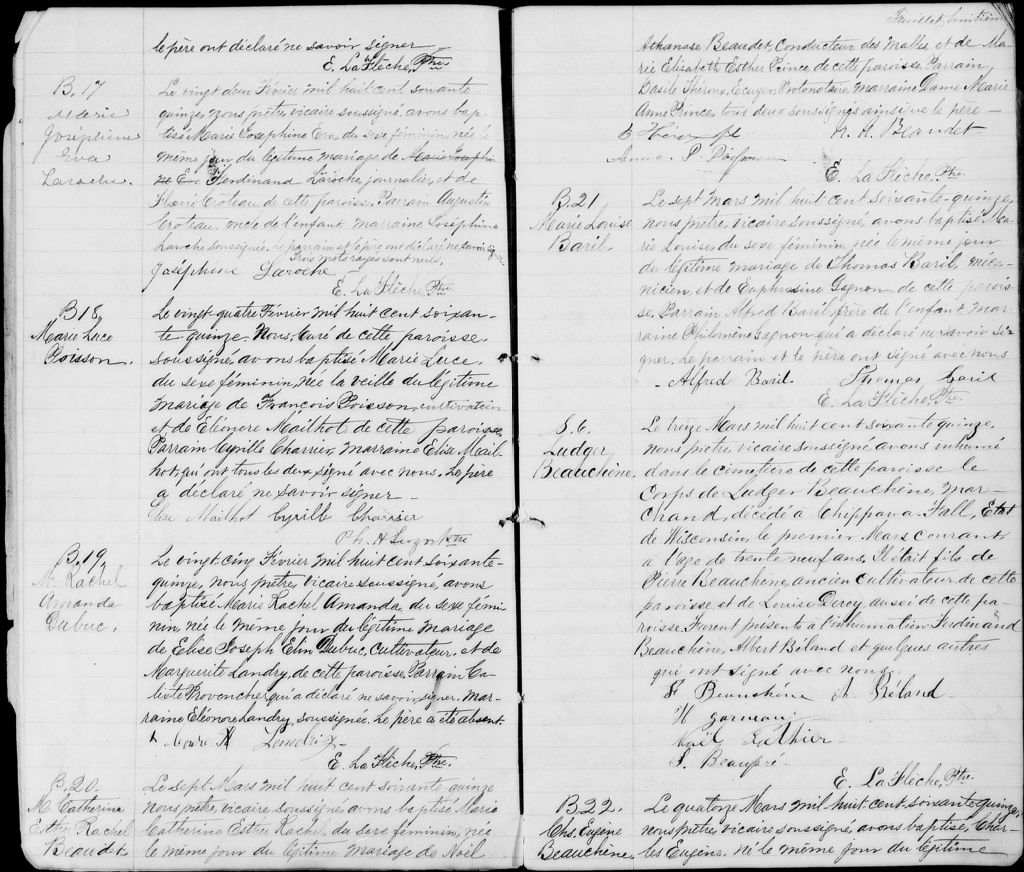 le père ont déclaré ne savoir signer
E. LaFlèche, Ptre
B. 17
Marie
Joséphine
Eva
Laroche.
Le vingt deux Février mil huit cent soixante
quinze, nous prêtre, vicaire soussigné avons bap-
tisé Marie Josephine Eva du sexe féminin née le
même jour du légitime mariage de Marie Josephi
ne Eva Ferdinand Laroche, journalier, et de
Croteau de cette paroisse. Parrain Augustin
Croteau, oncle de l'enfant, marraine Joséphine
Laroche soussignée, le parrain et le père ont déclaré ne savoir signer
Trois mots rayés sont nuls.
Joséphine Laroche
E. LaFlèche, Ptre.
B 18,
Marie Luce
Poisson.
Le vingt quatre Février mil huit cent soixan-
te quinze. Nous, Curé de cette paroisse
soussigné, avons baptisé Marie Luce
du sexe féminin, née la veille du légitime
mariage de François Poisson, cultivateur
et de Eléonore Mailhot de cette paroisse.
Parrain Cyrille Charrier, marraine Elise Mail-
hot, qui ont tous les deux signé avec nous. Le père
a déclaré ne savoir signer -
Elise Mailhot Cyrille Charrier
Ph. H Ptre
B. 19,
M. Rachel
Amanda
Dubuc.
Le vingt cinq Février mil huit cent soixante-
quinze, nous prêtre, vicaire soussigné, avons
baptisé Marie Rachel Amanda, du sexe fémi-
nin, née le même jour du légitime mariage
de Elise Joseph Elin Dubuc, cultivateur et de
Marguerite Landry, de cette paroisse. Parrain Ca-
lixte Provencher qui a déclaré ne savoir signer, mar-
raine Eléonore Landry, soussignée. Le père a été absent.
E. LaFlèche, Ptre.
B. 20.
M. Catherine
Esther Rachel
Beaudet
Le sept Mars mil huit cent soixante quinze
nous prêtre, vicaire soussigné avons baptisé Marie
Catherine Esther Rachel, du sexe féminin, née
le même jour du légitime mariage de Noël
Feuillet huitième
Athanase Beaudet, Conducteur des Malles et de Ma-
rie Elisabeth Esther Prince de cette paroisse. Parrain
Basile Theroux, Ecuyer, Protonotaire, marraine Dame Marie
Anne Prince, tous deux soussignés ainsi que le père -
N. A. Beaudet
Anna P.
E. LaFlèche, Ptre.
B. 21
Marie Louise
Baril.
Le sept Mars mil huit cent soixante-quinze,
nous prêtre, vicaire soussigné, avons baptisé Ma-
rie Louise, du sexe féminin, née le même jour
du légitime mariage de Thomas Baril, méca-
nicien, et de Euphrosine Gagnon de cette parois-
se. Parrain Alfred Baril frère de l'enfant, mar-
raine Philomène Gagnon qui a déclaré ne savoir si-
gner. Le parrain et le père ont signé avec nous
- Alfred Baril. Thomas Baril
E. LaFlèche, Ptre.
S. 6.
Ludger
Beauchêne.
Le treize Mars mil huit cent soixante quinze.
nous prêtre vicaire soussigné avons inhumé
dans le cimetière de cette paroisse le
Corps de Ludger Beauchêne, mar-
chand, décédé à Chippawa-Fall, Etat
de Wisconsin, le premier Mars courant
à l'age de trente neuf ans. Il était fils de
Pierre Beauchêne, ancien cultivateur de cette
paroisse et de Louise Dercy, aussi de cette pa-
roisse. Furent présents à l'inhumation Ferdinand
Beauchêne, Albert Béland et quelques autres
qui ont signé avec nous.
Beauchêne A. Béland
H
Noël
J.
E. LaFlèche, Ptre.
B 22.
Chs. Eugène
Beauchêne.
Le quatorze Mars mil-huit cent soixante-quinze,
nous prêtre, vicaire soussigné, avons baptisé, Char-
les Eugène, né le même jour du légitime